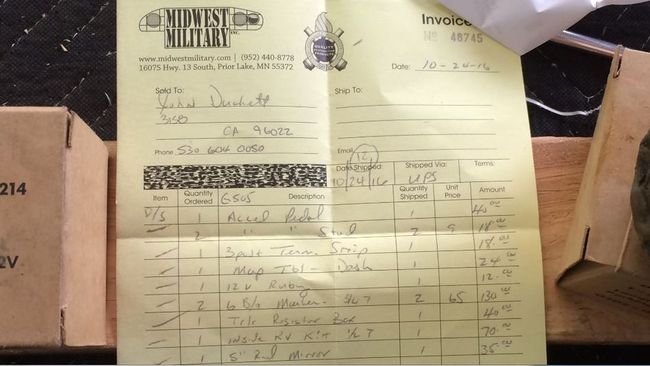 MIDWEST MILITARY INC.
Invoice
№ 48745
www.midwestmilitary.com | (952) 440-8778
16075 Hwy. 13 South, Prior Lake, MN 55372
Date: 10-24-16
Sold To: Ship To:
John Duckett
3150
CA 96022
Phone 530 604 0050 Email
12
Date Shipped Shipped Via: Terms:
10/24/16 UPS
Item Quantity Ordered G505 Description Quantity Shipped Unit Price Amount
1 Accel Pedal 1 40.00
2 " " Stud 2 9 18.00
1 3 post Term Strip 1 18.00
1 Map Dash 1 24.00
1 12V Ruby 1 12.00
2 6 B/o Marker 2 65 130.00
1 Box 1 40.00
1 inside RV Kit 1/2 T 1 70.00
1 5" Rnd Mirror 1 35.00
214
2V